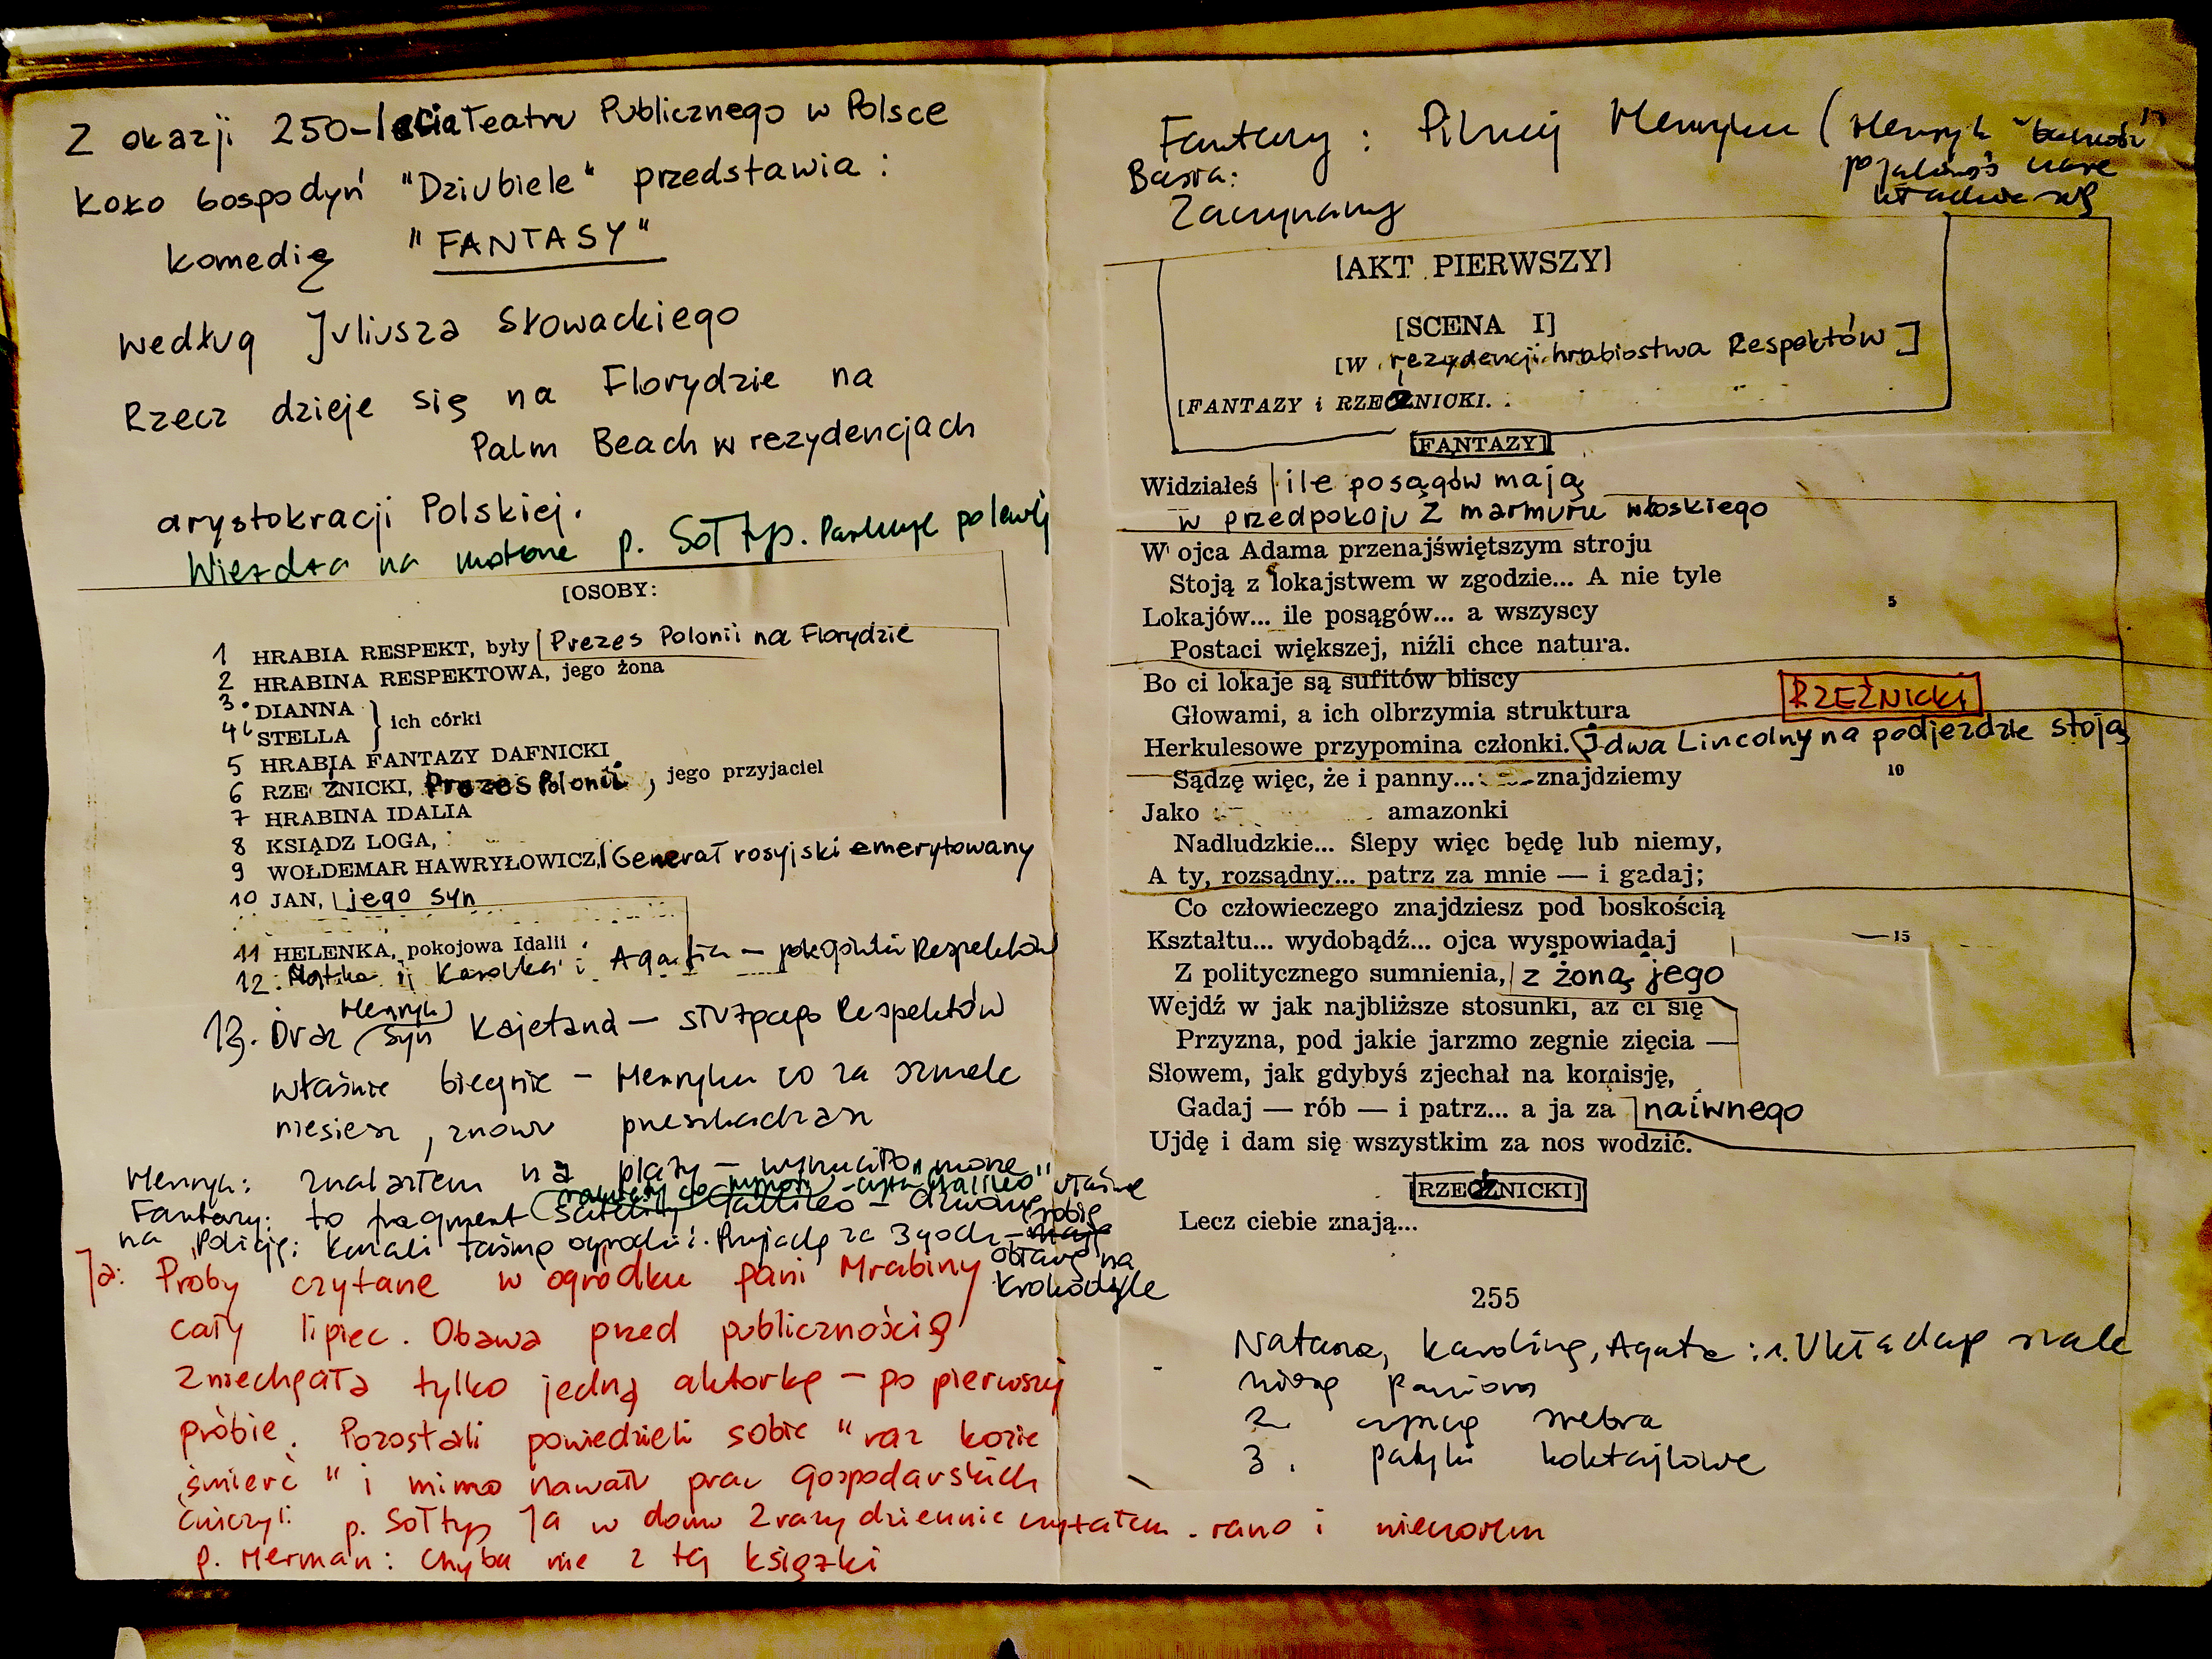 Z okazji 250-lecia Teatru Publicznego w Polsce
Koło Gospodyń "Dziubiele" przedstawia:
komedię "FANTASY"
według Juliusza Słowackiego
Rzecz dzieje się na Florydzie na
Palm Beach w rezydencjach
arystokracji Polskiej.
Wjeżdża na motorze p. Sołtys. Parkuje polewej
[OSOBY:
1 HRABIA RESPEKT, były Prezes Polonii na Florydzie
2 HRABINA RESPEKTOWA, jego żona
3. DIANNA
4 STELLA } ich córki
5 HRABIA FANTAZY DAFNICKI
6 RZEŹNICKI, Prezes Polonii, jego przyjaciel
7 HRABINA IDALIA
8 KSIĄDZ LOGA,
9 WOŁDEMAR HAWRYŁOWICZ, Generał rosyjski emerytowany
10 JAN, jego syn
11 HELENKA, pokojowa Idalii
12. i Agatka – Respektów
13. Oraz Henryk syn Kajetana – służącego Respektów
właśnie biegnie – Henryku co za szmelc
niesiesz, znowu przeszkadzasz
Henryk: znalazłem na plaży – wyrzuciło morze
Fantazy: to fragment satelity Galileo – dzwonię
na Policję: kazali taśmą ogrodzić. Przyjadą za 3 godz – właśnie robią
obławę na
krokodyle
Ja: Proby czytane w ogrodku pani Hrabiny
cały lipiec. Obawa przed publicznością
zniechęcała tylko jedną aktorkę – po pierwszej
próbie. Pozostali powiedzieli sobie "raz kozie
śmierć" i mimo nawału prac gospodarskich
ćwiczyli p. Sołtys Ja w domu 2 razy dziennie czytałem. rano i wieczorem
p. Herman: Chyba nie z tej książki
Fantazy: Pilnuj Henryku (Henryk
Basia:
Zaczynamy
[AKT PIERWSZY]
[SCENA I]
[W rezydencji hrabiostwa Respektów]
[FANTAZY i RZEŹNICKI.
[FANTAZY]
Widziałeś ile posągów mają
w przedpokoju z marmuru włoskiego
W ojca Adama przenajświętszym stroju
Stoją z lokajstwem w zgodzie... A nie tyle
Lokajów... ile posągów... a wszyscy 5
Postaci większej, niźli chce natura.
Bo ci lokaje są sufitów bliscy
Głowami, a ich olbrzymia struktura
RZEŹNICKI
Herkulesowe przypomina członki. I dwa Lincolny na podjezdzie stoją
Sądzę więc, że i panny... znajdziemy 10
Jako amazonki
Nadludzkie... Ślepy więc będę lub niemy,
A ty, rozsądny... patrz za mnie — i gadaj;
Co człowieczego znajdziesz pod boskością
Kształtu... wydobądź... ojca wyspowiadaj 15
Z politycznego sumnienia, z żoną jego
Wejdź w jak najbliższe stosunki, aż ci się
Przyzna, pod jakie jarzmo zegnie zięcia —
Słowem, jak gdybyś zjechał na komisję,
Gadaj — rób — i patrz... a ja za naiwnego
Ujdę i dam się wszystkim za nos wodzić.
[RZEŹNICKI]
Lecz ciebie znają...
255
Natasza, Karolina, Agata: 1. Układają
2. srebra
3. patyki koktajlowe